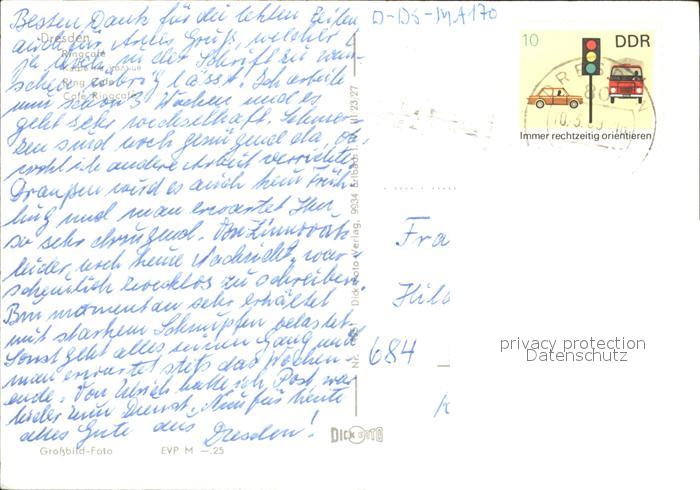 Besten Dank für die lehten Zeilen
auch für Antis Gruß, welcher
in der Schrift zu wün-
schen übrig lässt. Ich arbeite
nun schon 3 Wochen und es
geht sehr wechselhaft. Schmer-
zen sind noch genügend da, ob-
wohl ich andere Arbeit verrichte.
Draußen wird es auch kein Früh-
ling und man erwartet ihn
so sehr dringend. Von
leider noch keine Nachricht, war
scheinlich zwecklos zu schreiben.
Bin momentan sehr erkältet
mit starkem Schnupfen belastet.
Sonst geht alles seinen Gang und
man erwartet stets das Wochen-
ende. Von Ulrich hatte ich Post, war
leider zum Dienst. Nun für heute
alles Gute aus Dresden!
Dresden
Ringcafé
Ring Café
Café Ringcafé
D-DS-MA170
10 DDR
Immer rechtzeitig orientieren
DRESDEN
80
III 23 27
Dick-Foto-Verlag, 9934 Erlbach i. V.
Fra
Hil
684
privacy protection
Datenschutz
DICK FOTO
Großbild-Foto EVP M —.25